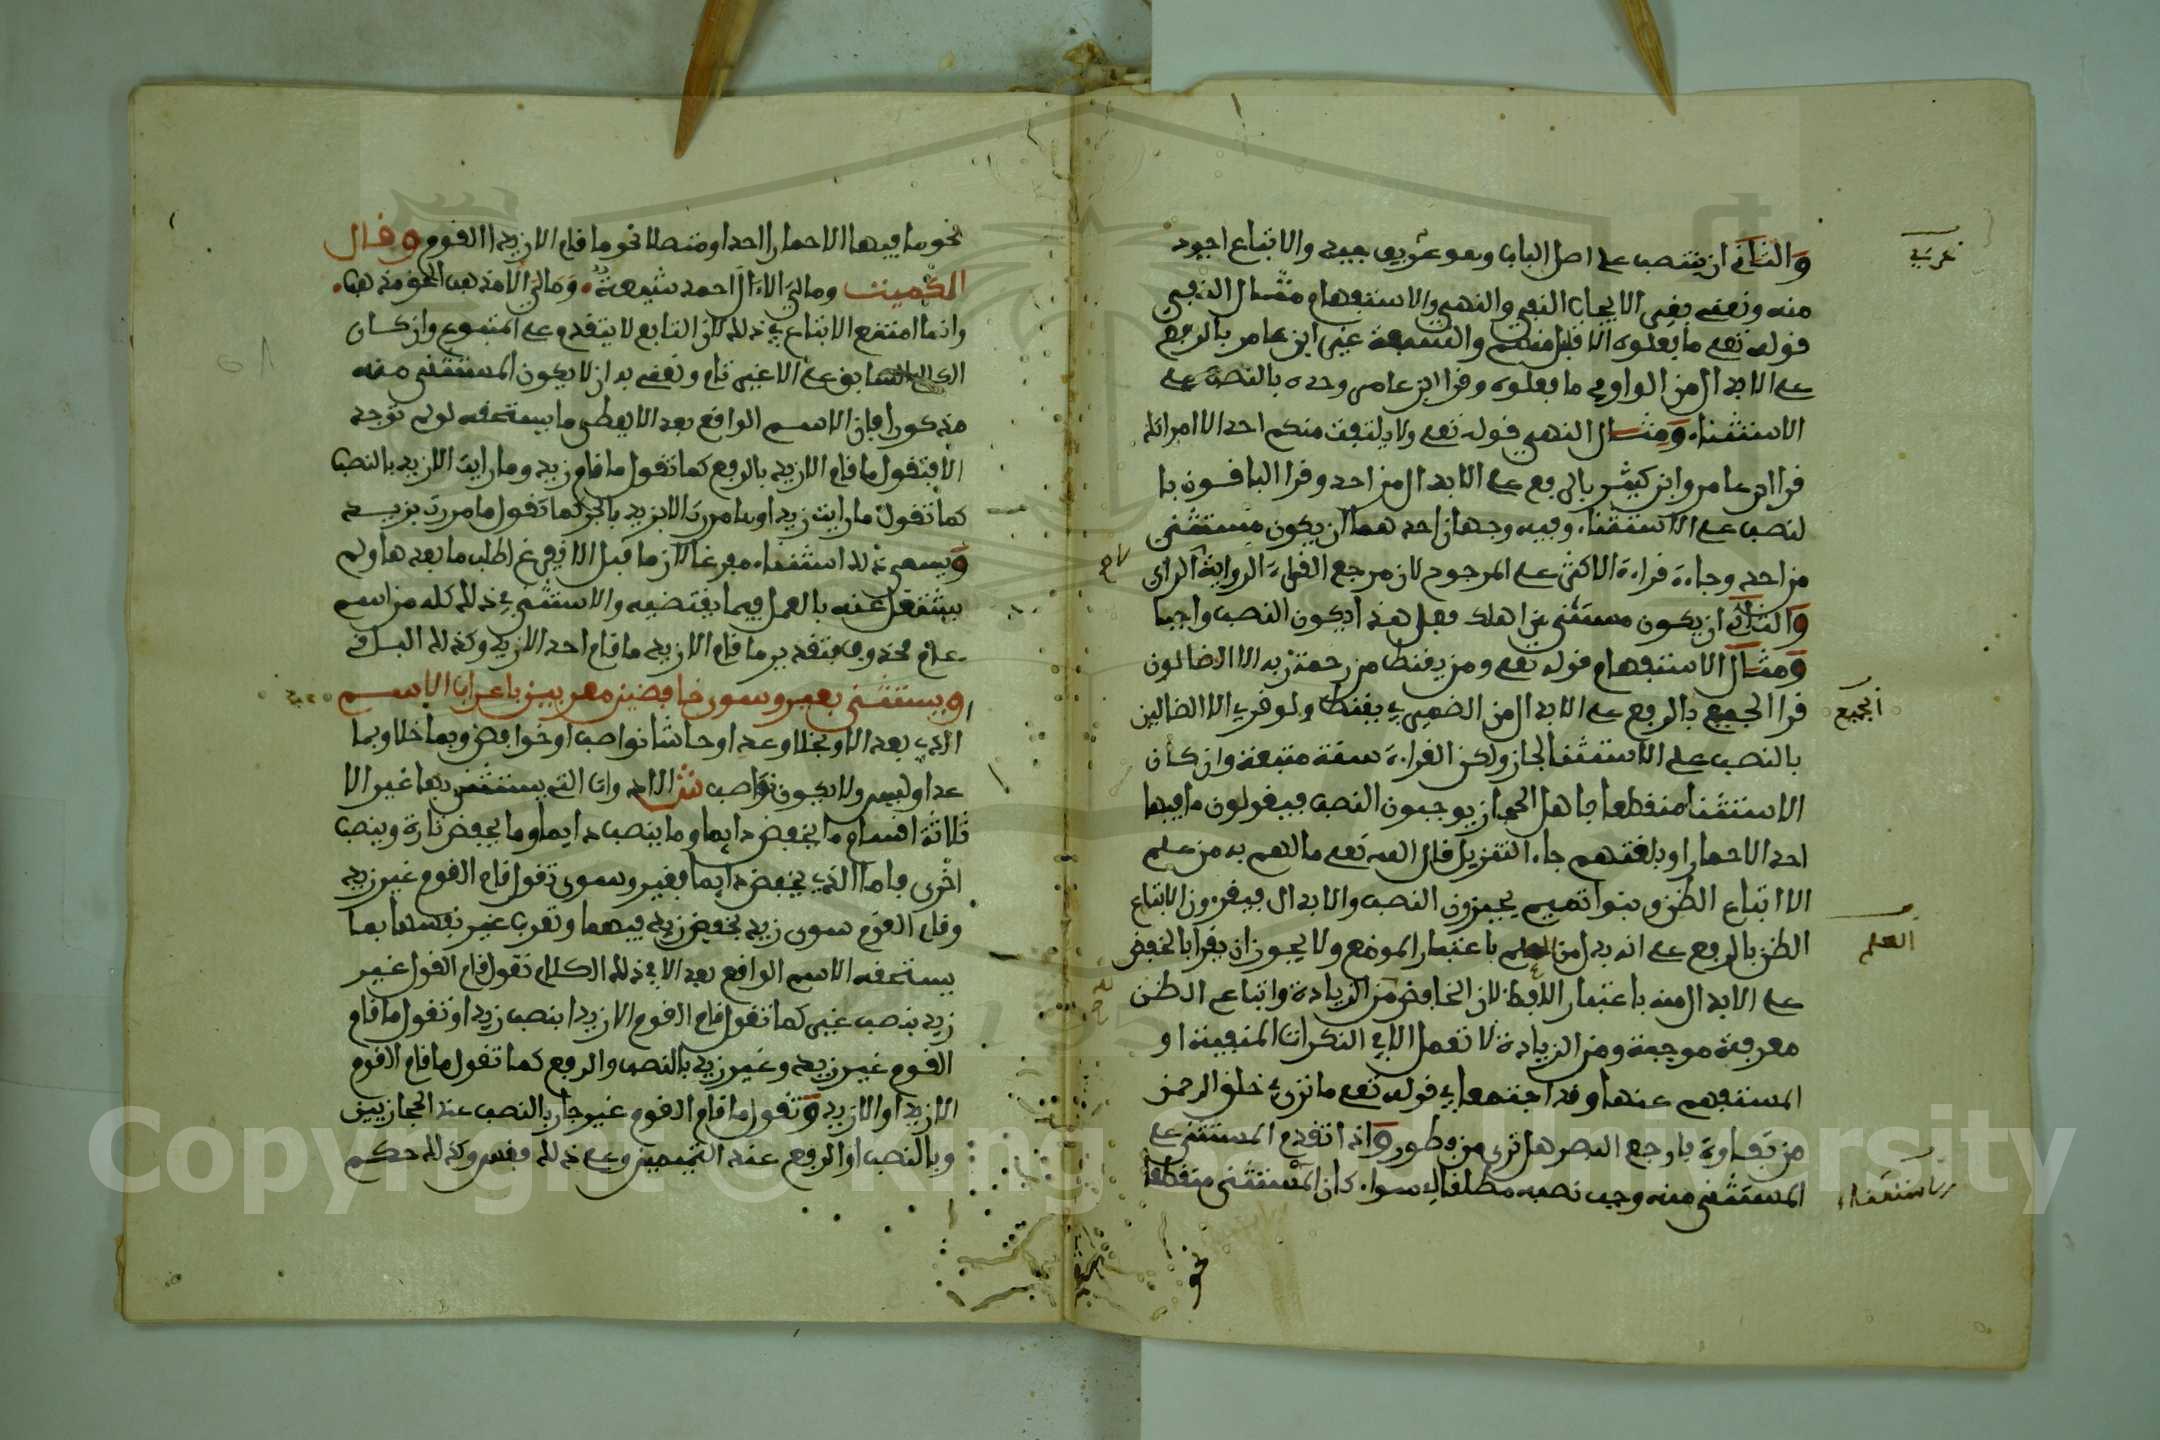 والثاني ان ينتصب على اصل الباب وهو عربي جيد والاتباع اجود
عربي
منه ونعني بغير الايجاب النفي والنهي والاستفهام مثال النفي
قوله تعلى ما فعلوه الا قليل منهم والسبعة غير ابن عامر بالرفع
على الابدال من الواو في ما فعلوه وقرا ابن عامر وحده بالنصب على
الاستثناء ومثال النهي قوله تعلى ولا يلتفت منكم احد الا امراتك
قرا ابو عامر وابن كثير بالرفع على الابدال من احد وقرا الباقون با
لنصب على الاستثناء وفيه وجهان احدهما ان يكون مستثنى
من احد وجاءة قراءة الاكثر على المرجوح لان مرجع القراءة الرواية لا الراي
والثاني ان يكون مستثنى من اهلك فعلى هذا يكون النصب واجبا
ومثال الاستفهام قوله تعلى ومن يقنط من رحمة ربه الا الضالون
قرا الجميع بالرفع على الابدال من الضمير في يقنط ولو قرئ الا الضالين
الجميع
بالنصب على الاستثنا لجاز ولكن القراءة سنة متبعة وان كان
الاستثنا منقطعا فاهل الحجاز يوجبون النصب فيقولون ما فيها
احد الا حمارا وبلغتهم جاء التنزيل قال الله تعلى ما لهم به من علم
الا اتباع الظن وبنوا تميم يجيزون النصب والابدال فيقرءون الا اتباع
الظن بالرفع على انه بدل من العلم باعتبار الموضع ولا يجوز ان يقرا بالخفض
العلم
على الابدال منه باعتبار اللفظ لان الخافض من الزيادة واتباع الظن
معرفة موجبة ومن الزيادة لا تعمل الا في النكرات المنفية او
المستفهم عنها وقد اجتمعا في قوله تعلى ما ترى في خلق الرحمن
من تفاوت فارجع البصر هل ترى من فطور واذا تقدم المستثنى على
المستثنى منه وجب نصبه مطلقا اي سواء كان المستثنى منقطعا
نحو
نحو ما فيها الا حمارا احد او متصلا نحو ما قام الا زيدا القوم وقال
الكميت وما لي الا ءال احمد شيعة وما لي الا مذهب الحق مذهب
وانما امتنع الاتباع في ذلك لان التابع لا يتقدم على المتبوع وان كان
السابق على الا غير تام ونعني به ان لا يكون المستثنى منه
مذكورا فان الاسم الواقع بعد الا يعطى ما يستحقه لو لم توجد
الا فتقول ما قام الا زيد بالرفع كما تقول ما قام زيد وما رايت الا زيدا بالنصب
كما تقول ما رايت زيدا وما مررت الا بزيد بالجر كما تقول ما مررت بزيد
ويسمى ذلك استثناء مفرغا لان ما قبل الا تفرغ لطلب ما بعدها ولم
يشتغل عنه بالعمل فيما يقتضيه والاستثنى في ذلك كله من اسم
عام محذوف فتقدير ما قام الا زيد ما قام احد الا زيد وكذلك الباقي
ويستثنى بغير وسوى خافضين معربين باعراب الاسم
الذي بعد الا وبخلا وعدا وحاشا نواصب او خوافض وبما خلا وبما
عدا وليس ولا يكون نواصب ش الادوات التي يستثنى بها غير الا
ثلاثة اقسام ما يخفض دايما وما ينصب دايما وما يخفض تارة وينصب
اخرى فاما الذي يخفض دايما فغير وسوى تقول قام القوم غير زيد
وقام القوم سوى زيد بخفض زيد فيهما وتعرب غير نفسها بما
يستحقه الاسم الواقع بعد الا في ذلك الكلام تقول قام القوم غير
زيد بنصب غير كما تقول قام القوم الا زيدا بنصب زيدا وتقول ما قام
القوم غير زيد وغير زيد بالنصب والرفع كما تقول ما قام القوم
الا زيدا والا زيد وتقول ما قام القوم غير حمار بالنصب عند الحجازيين
وبالنصب او الرفع عند التميميين وعلى ذلك فقس وكذلك حكم
Copyright © King Saud University